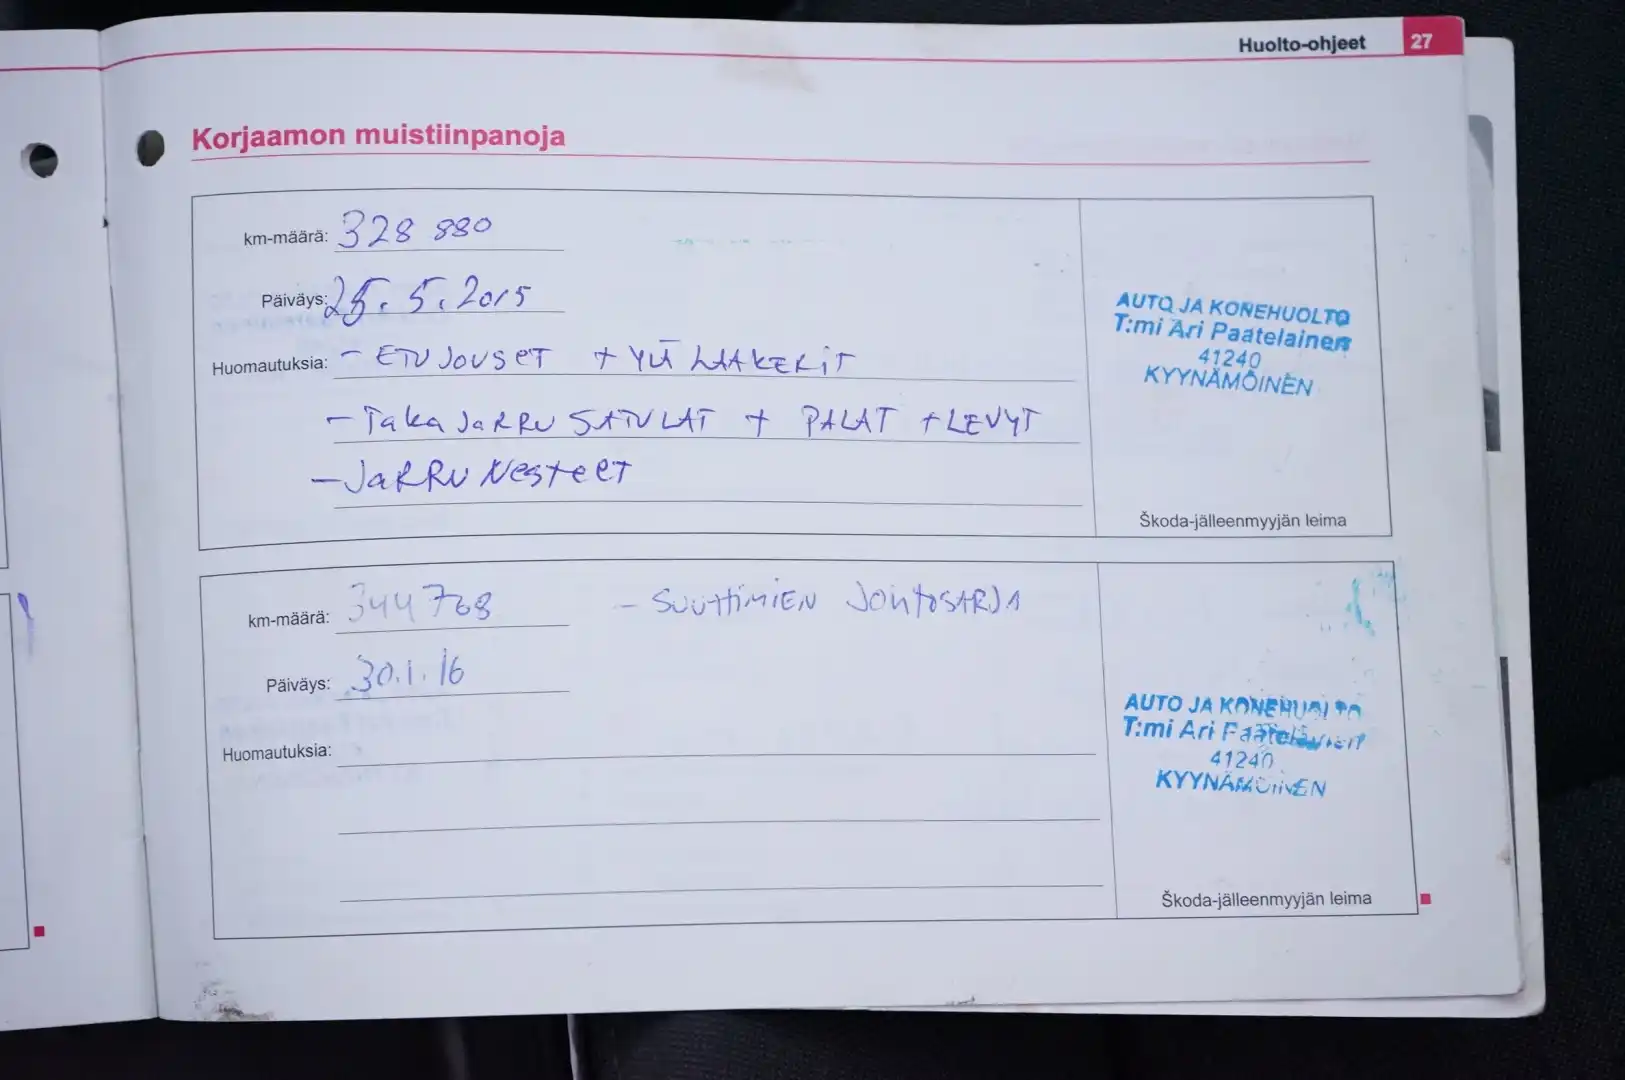 Huolto-ohjeet 27
Korjaamon muistiinpanoja
km-määrä: 328 880
Päiväys: 25.5.2015
Huomautuksia: - ETU JOUSET + YLÄ LAAKERIT
- Taka JaRRU SATULAT + PALAT + LEVYT
- JaRRU NesteeT
AUTO JA KONEHUOLTO
T:mi Ari Paatelainen
41240
KYYNÄMÖINEN
Škoda-jälleenmyyjän leima
km-määrä: 344 768 - SUUttiMIEN JOHtoSARJA
Päiväys: 30.1.16
Huomautuksia:
AUTO JA KONEHUOLTO
T:mi Ari Paatelainen
41240
KYYNÄMÖINEN
Škoda-jälleenmyyjän leima